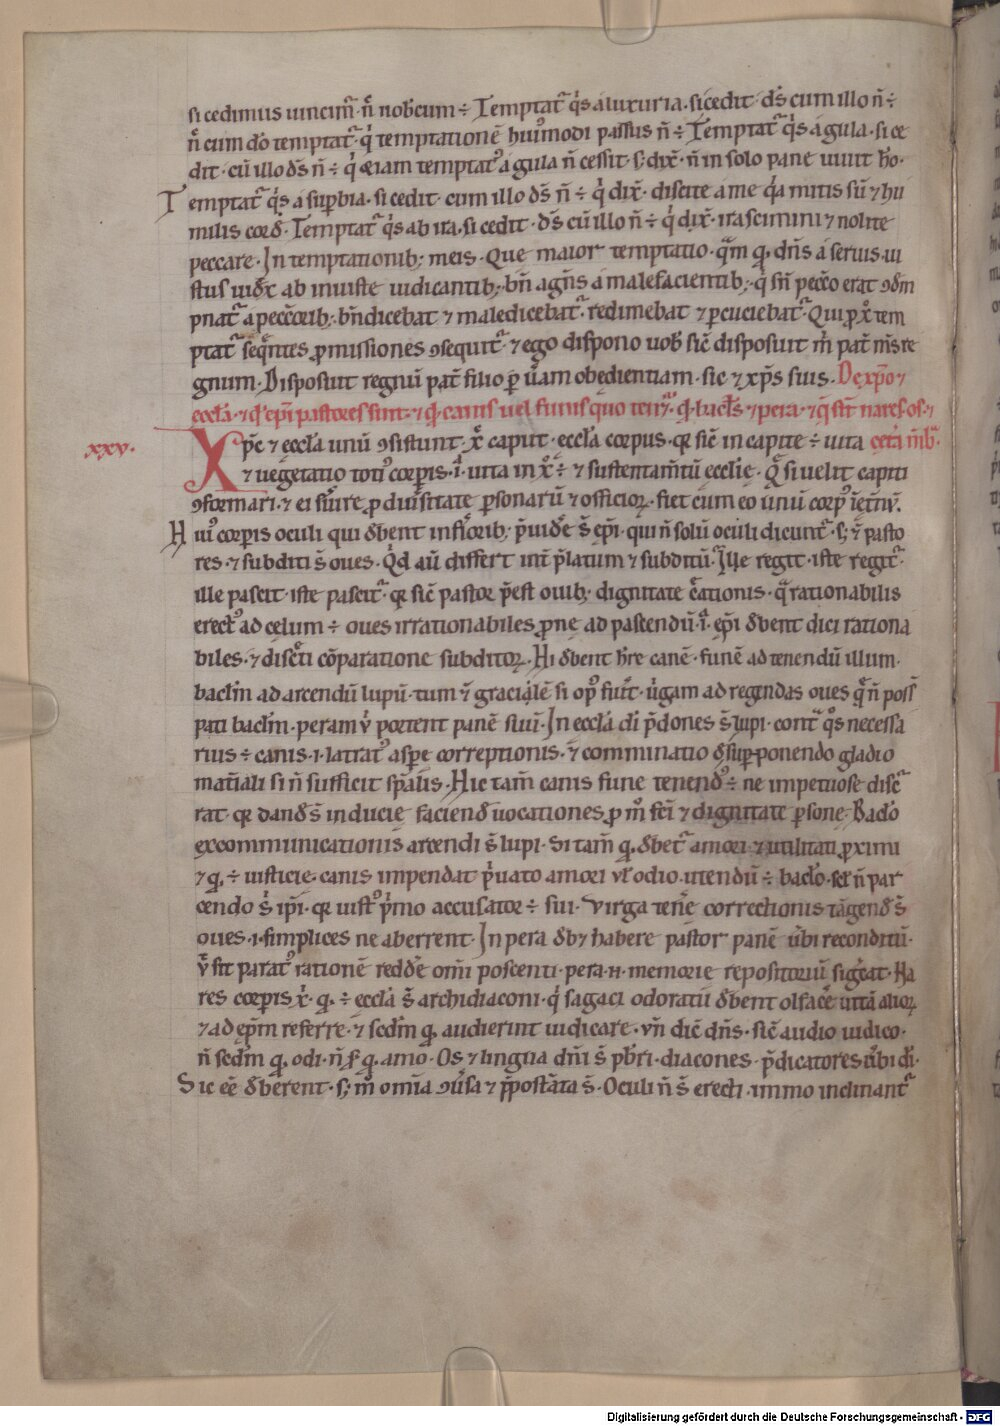 si cedimus uincim̃· ñ nobiscum ÷ Temptat᷑ q̇s a luxuria· si cedit· d̄s cum illo ñ ÷
ñ cum d̄o temptat᷑· q̇ temptationē hui᷒modi passus ñ ÷ Temptat᷑ q̇s a gula· si ce
dit· cū illo d̄s ñ ÷ q̇ &iam temptat᷒ a gula ñ cessit· s; dix̄· ñ in solo pane uiuit hō·
Temptat᷑ q̇s a sup̄bia· si cedit· cum illo d̄s ñ ÷ q̇ dix̄· discite a me q̇a mitis sū ⁊ hu
milis cord̄· Temptat᷑ q̇s ab ira· si cedit· d̄s cū illo ñ ÷ q̇ dix̄· irascimini ⁊ nolite
peccare· In temptationib; meis· Que maior temptatio· q̄m q̇· dn̄s a seruis· iu
stus iud̄x ab iniuste iudicantib;· bn̄ agn̄s a malefacientib;· q̇ sn̄ pecc̄o erat ↄd̄m
pnat᷑ a pecc̄orib;· bn̄dicebat ⁊ maledicebat᷑· redimebat ⁊ p̄cuciebat᷑· Qui ꝓ x̊ tem
ptat᷑ seq̄ntes ꝓmissiones ↄsequit᷑· ⁊ ego dispono uob̄ sic̄ disposuit m̊ pat᷑ m̄s re
gnum· Disposuit regnū pat᷑ filio ꝑ ūam obedientiam· sic ⁊ xp̄s suis· De xp̄o ⁊
eccl̄a· ⁊ q̇ ep̄i pastores sint· ⁊ q̇ canis uel funis quo ten᷑· q̇ bacl̄s ⁊ pera· ⁊ q̇ sīt nares· os· ⁊
xxv·
Xp̄c ⁊ eccl̄a unū ↄsistunt· x̊ caput· eccl̄a corpus· qr sic̄ in capite ÷ uita cet̄a m̄b᷑·
⁊ uegetatio toti᷒ corporis· i̊ uita in x̊ ÷ ⁊ sustentam̄tū ecclīe· Q̇ si uelit capiti
ↄformari· ⁊ ei s̄uire ꝓ diu̾sitate ꝑsonarū ⁊ officioꝝ· fiet cum eo unū corp᷒
Hui᷒ corporis oculi qui d̄bent inf̄iorib; p̄uid̄e s̄ ep̄i· qui ñ solū oculi dicunt᷑· s; ⁊ pasto
res· ⁊ subditi s̄ oues· Q̇d aū differt int̄ p̄latum ⁊ subditū· Ille regit· iste regit᷑·
ille pascit· iste pascit᷑· qr sic̄ pastor p̄est ouib; dignitate c̄ationis· q̇ rationabilis
erect᷒ ad celum ÷ oues irrationabiles ꝓne ad pascendū· i̊ ep̄i d̄bent dici rationa
biles· ⁊ disc̄ti cōparatione subditoꝝ· Hi d̄bent h̄re canē· funē ad tenendū illum·
bacl̄m ad arcendū lupū· tum ⁊ si op᷒ fūt᷑· ūgam ad regendas oues q̇ ñ poss̄
pati bacl̄m· peram ů portent panē suū· In eccl̄a di p̄dones s̄ lupi· cont᷑ q̇s necessa
rius ÷ canis· i· latrat᷒ aspe correptionis· ⁊ comminatio d̄sup· ponendo gladio
mat̄iali si ñ sufficit sp̄alis· Hic tam̄ canis fune tenend᷒ ÷ ne impetuose disc᷑
rat· qr dand̄ s̄ inducie faciend̄ uocationes ꝓ m̊ fc̄i ⁊ dignitate ꝑsone· Baclo
excommunicationis arcendi s̄ lupi· Si tam̄ q̇· d̄bet᷑ amori ⁊ utilitati ꝓximi
⁊ q̇· ÷ iusticie· canis impendat p̄uato amori ul̄ odio· utendū ÷ baclo· sꝫ ñ par
cendo s̄ ip̄i· qr iust᷒ p̄mo accusator ÷ sui· Virga ten̄e correctionis tāgend̄ s̄
oues· i· simplices ne aberrent· In pera d̄b⁊ habere pastor panē ūbi reconditū·
ů sit parat᷒ rationē redd̄e om̄i poscenti· pera n· memorie repositoriū sig̊cat· Na
res corporis x̊· q̇· ÷ eccl̄a s̄ archidiaconi· q̇ sagaci odoratu d̄bent olfac̄e uitā alioꝝ
⁊ ad ep̄m referre· ⁊ scdm̄ q̇ audierint iudicare· un̄ dic̄ dn̄s· sic̄ audio iudico·
ñ scdm̄ q̇ odi· ñ q̇ amo· Os ⁊ lingua dn̄i s̄ p̄bri· diacones· p̄dicatores ūbi di·
Sic eē d̄berent· s; m̊ om̄ia ↄu̾sa ⁊ p̄post̄ata s̄· Oculi ñ s̄ erecti· immo inclinant᷑
Digitalisierung gefördert durch die Deutsche Forschungsgemeinschaft - DFG